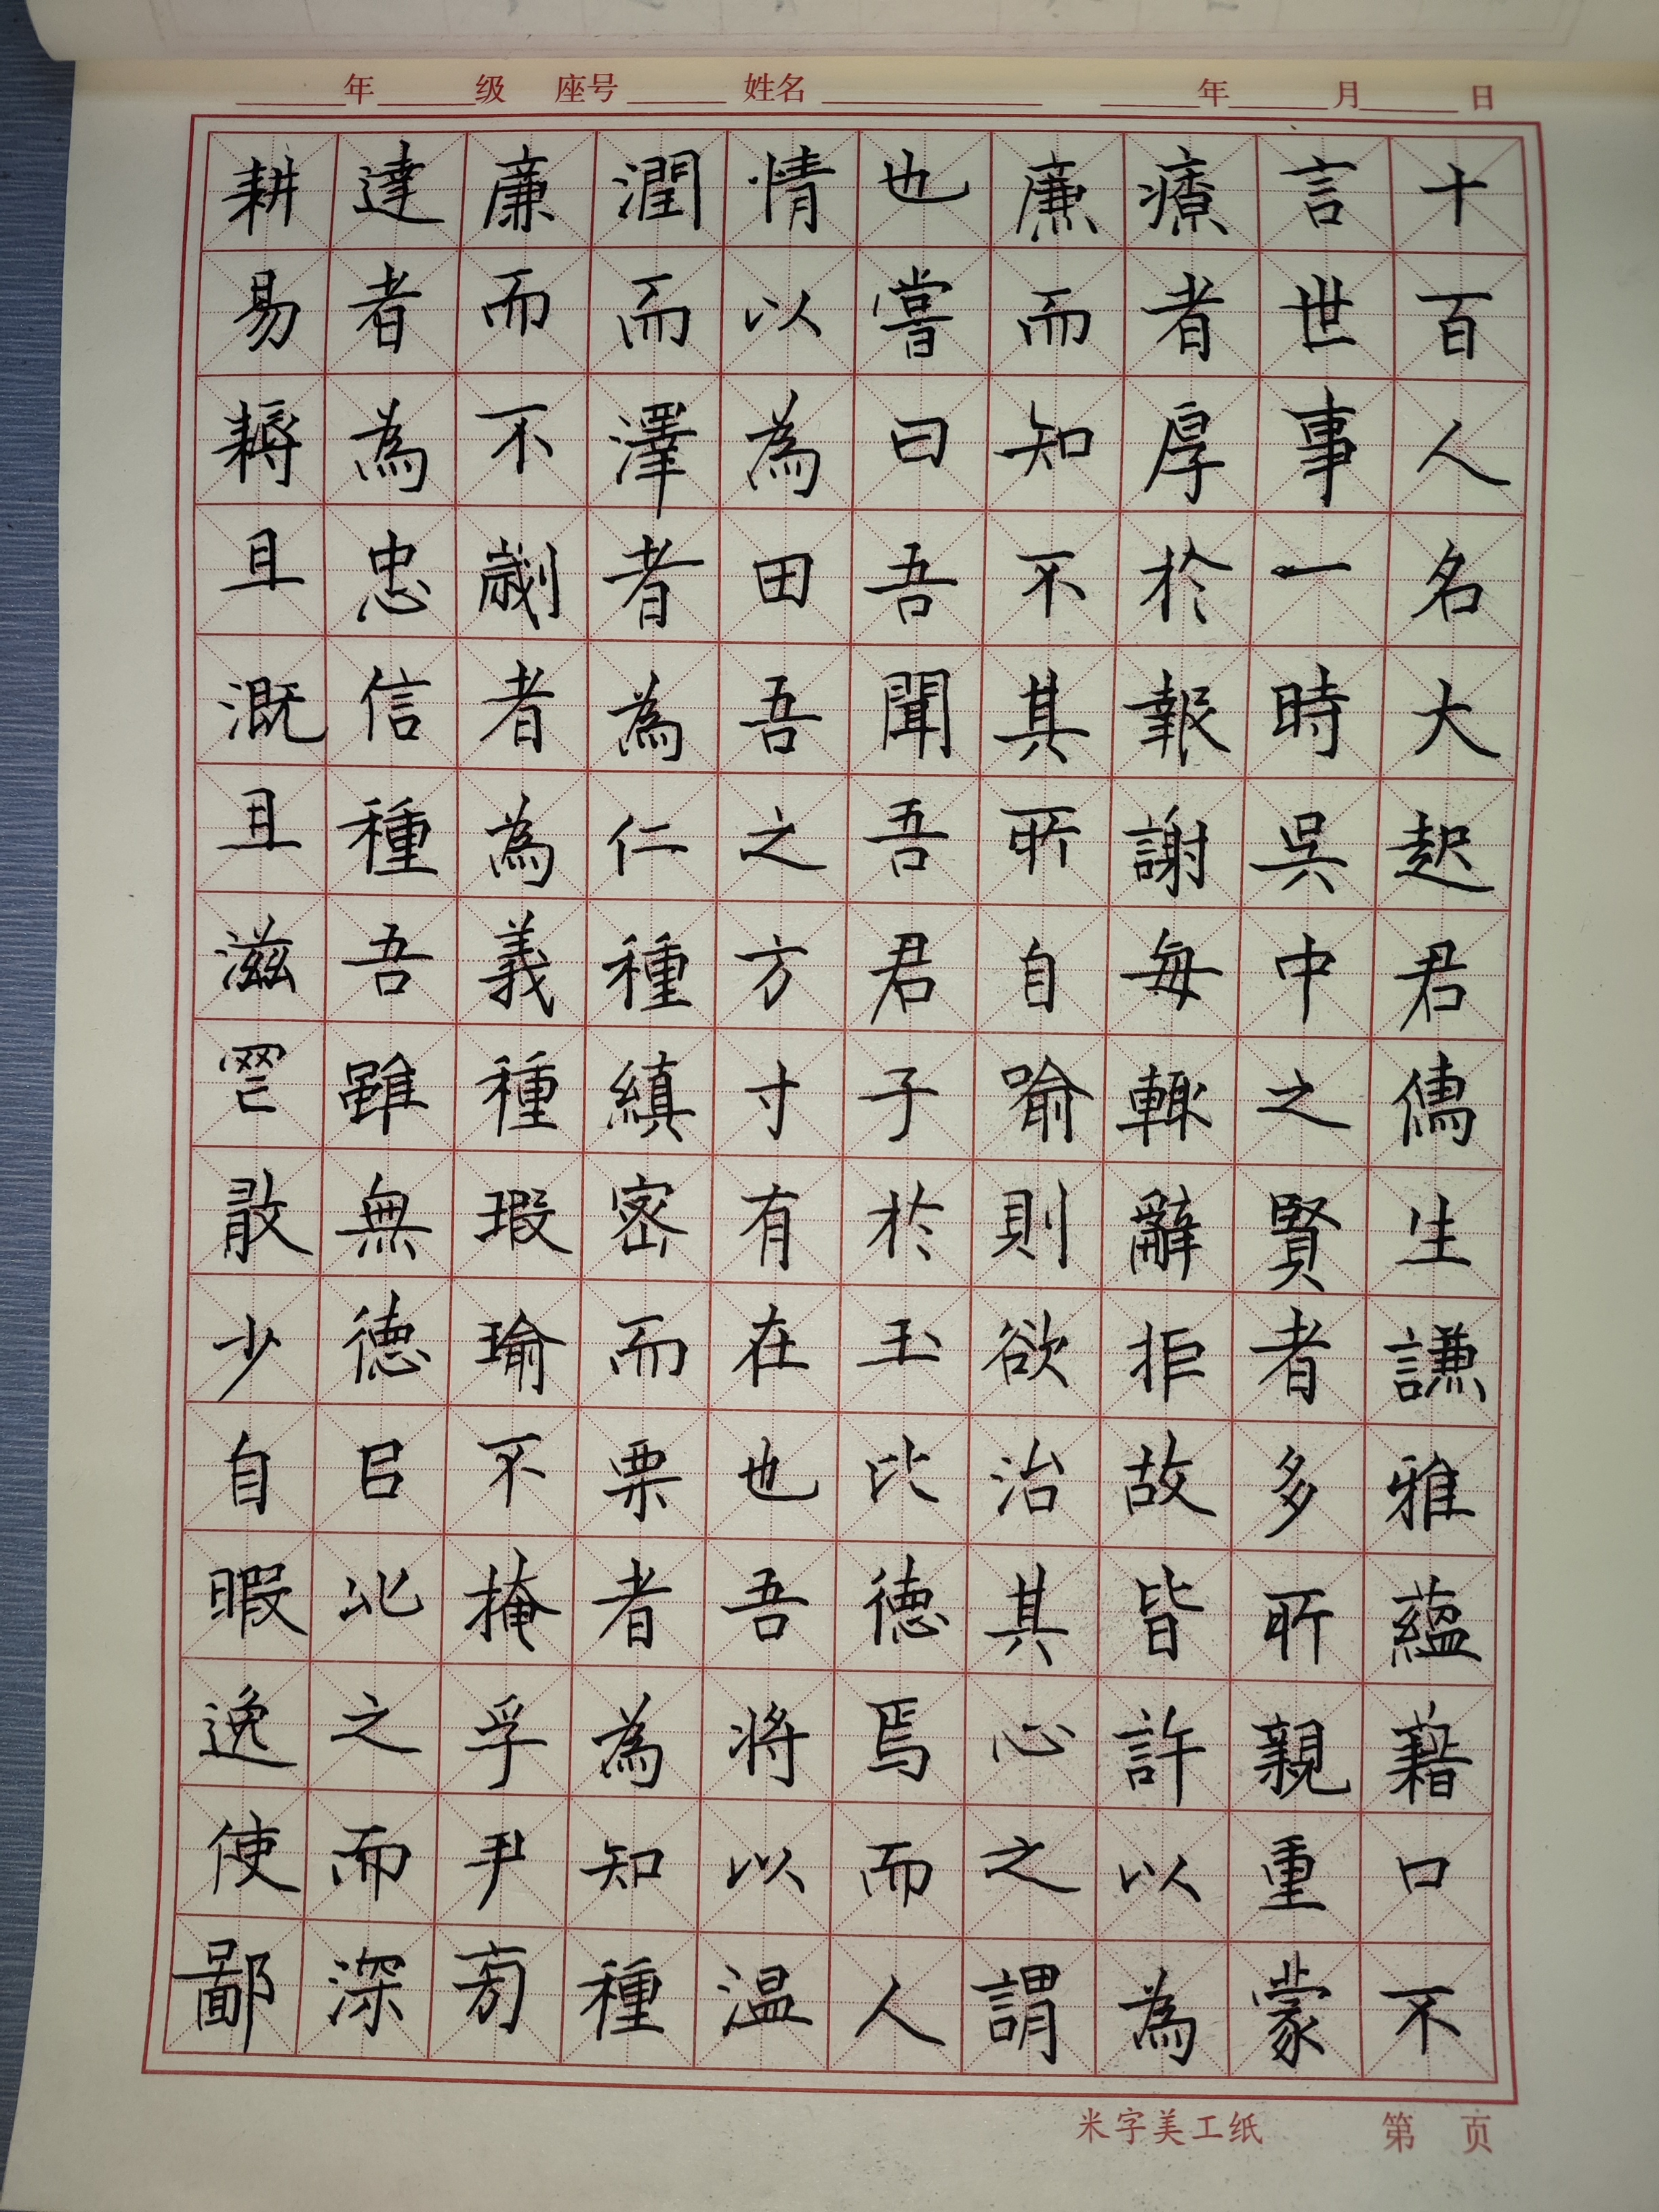 年 级 座号 姓名 年 月 日
十百人名大起君儒生謙雅蘊藉口不
言世事一時吳中之賢者多所親重蒙
療者厚於報謝每輙辭拒故皆許以為
廉而知不其所自喻則欲治其心之謂
也嘗曰吾聞吾君子於玉比德焉而人
情以為田吾之方寸有在也吾將以温
潤而澤者為仁種縝密而栗者為知種
廉而不劌者為義種瑕瑜不掩孚尹旁
達者為忠信種吾雖無德㠯此之而深
耕易耨且溉且滋詈敢少自暇逸使鄙
米字美工纸 第 页